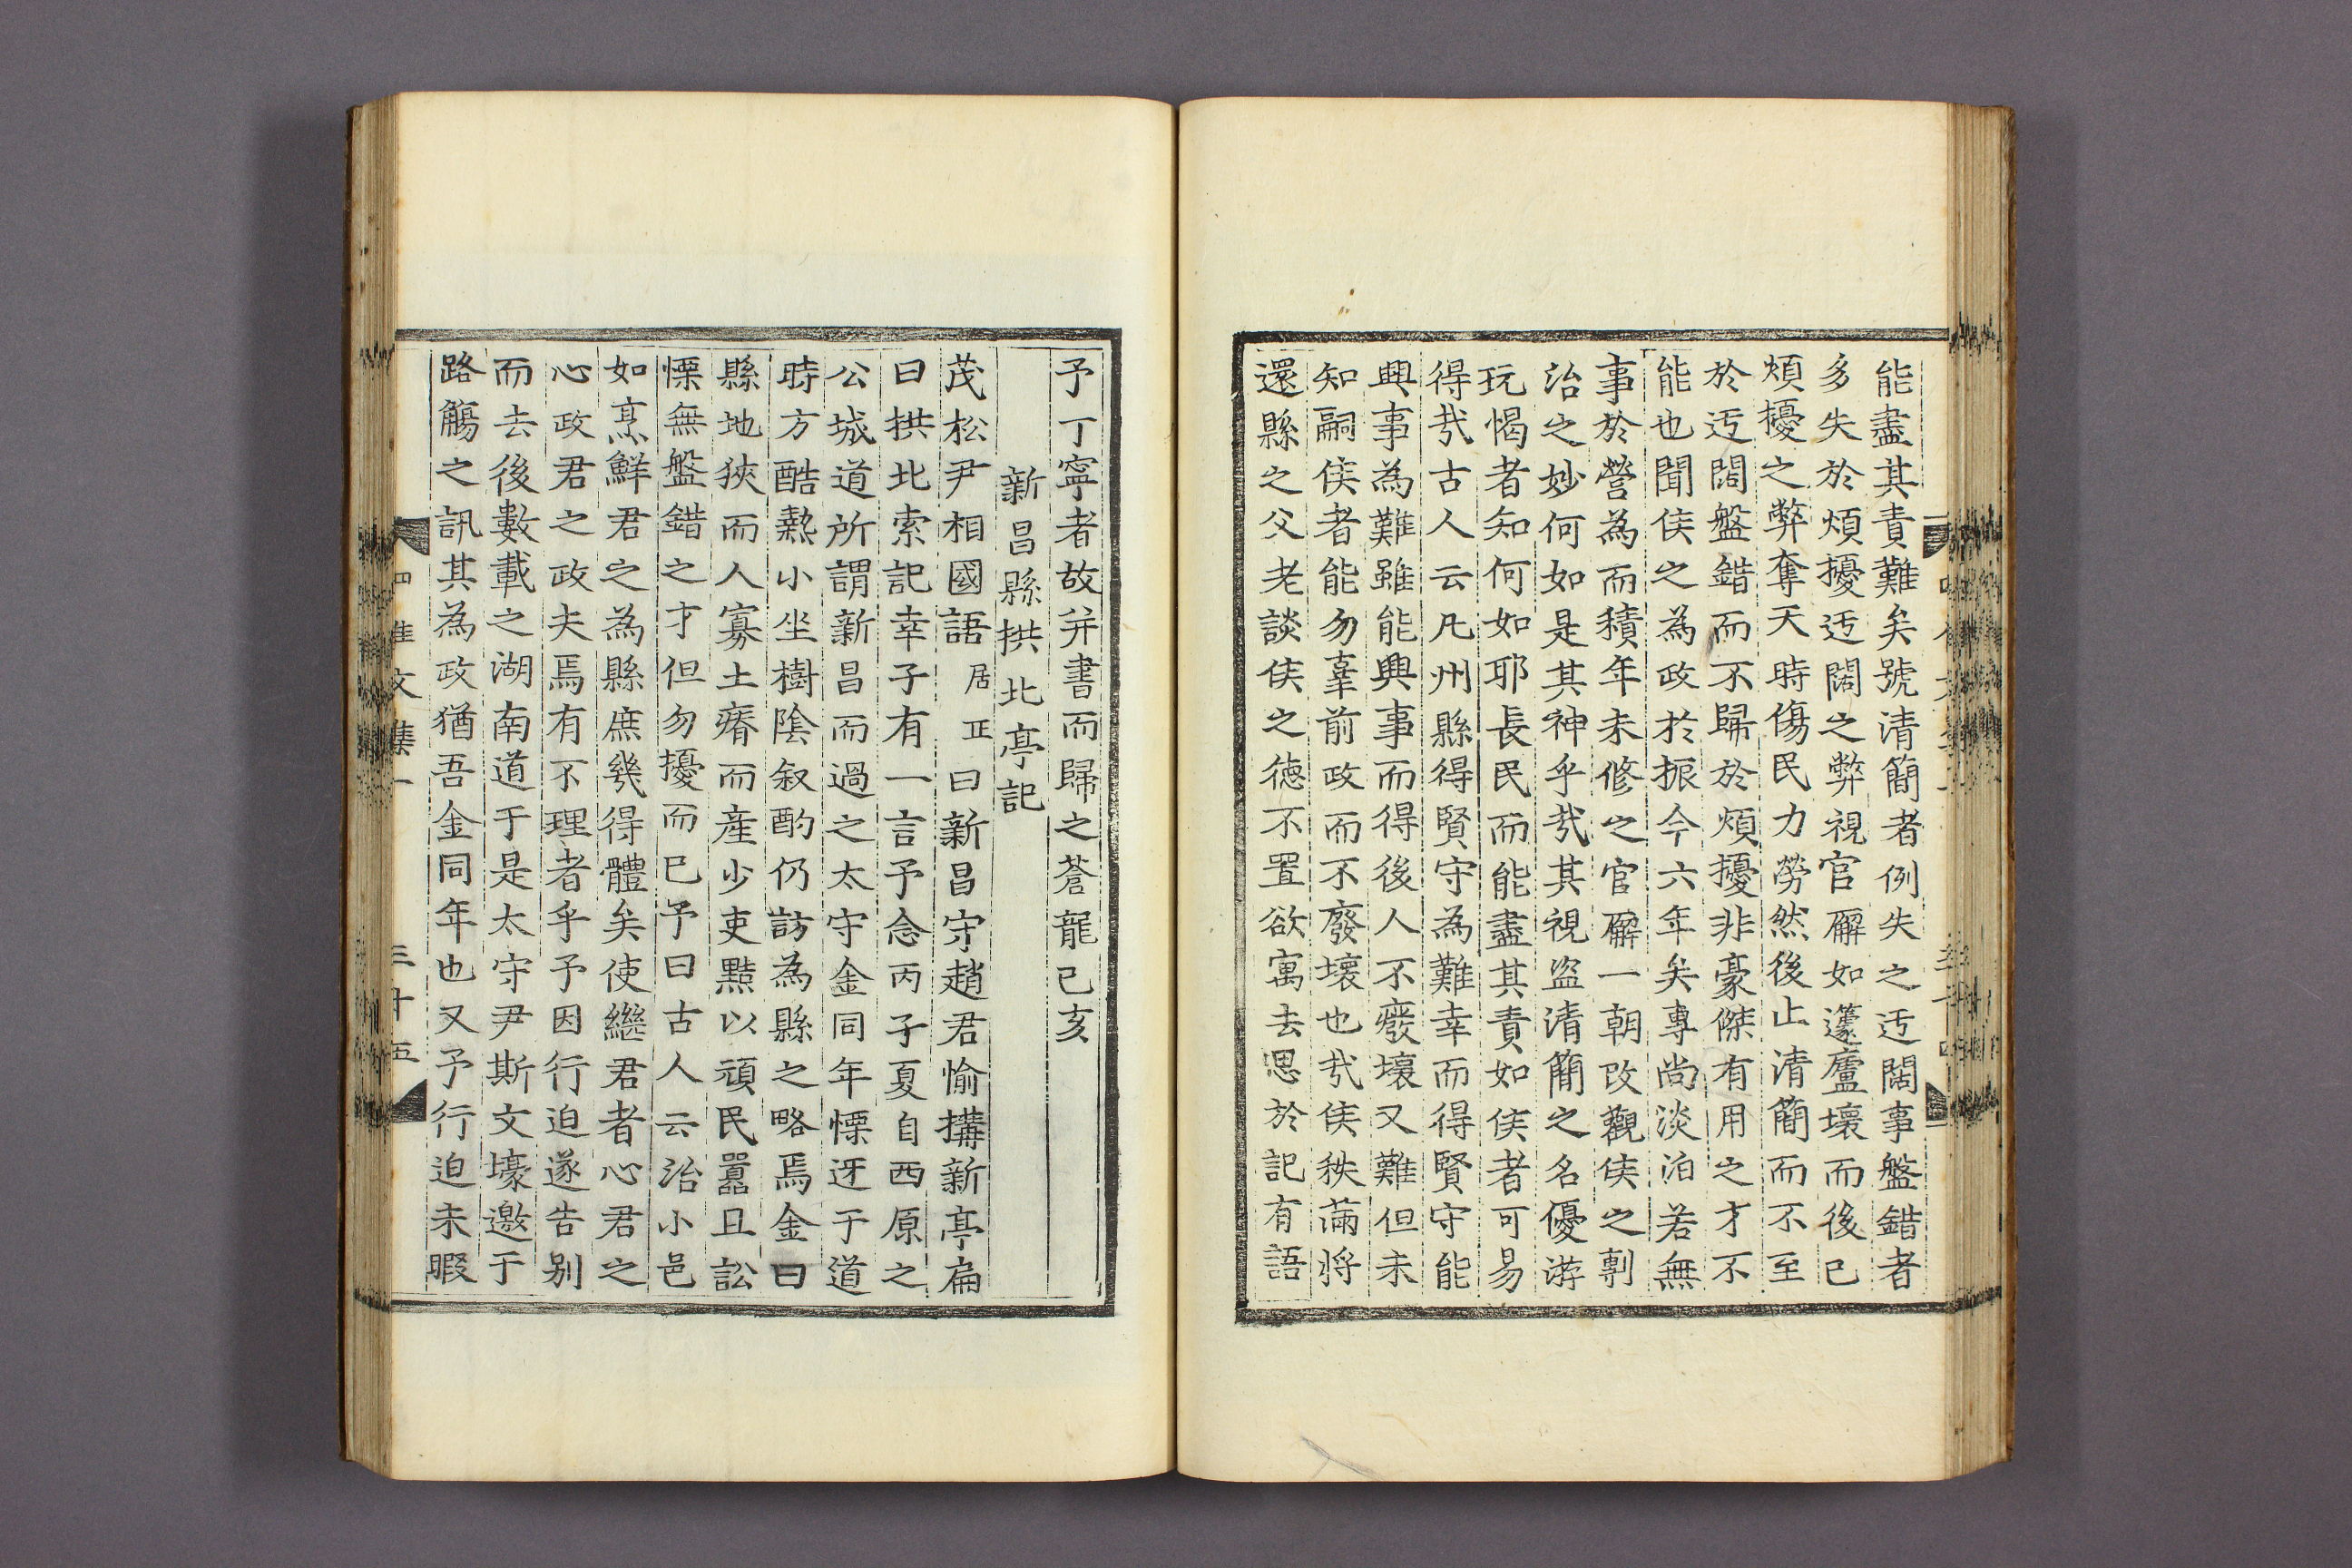 能盡其責難矣號清簡者例失之迃闊事盤錯者
多失於煩擾迃闊之弊視官廨如蘧廬壞而後已
煩擾之弊奪天時傷民力勞然後止清簡而不至
於迃闊盤錯而不歸於煩擾非豪傑有用之才不
能也聞侯之為政於振今六年矣專尚淡泊若無
事於營為而積年未修之官廨一朝改觀侯之剸
治之妙何如是其神乎㢤其視盜清簡之名優游
玩愒者知何如耶長民而能盡其責如侯者可易
得㢤古人云凡州縣得賢守為難幸而得賢守能
興事為難雖能興事而得後人不癈壞又難但未
知嗣侯者能勿辜前政而不廢壞也㢤侯秩滿將
還縣之父老談侯之德不置欲寓去思於記有語
予丁寧者故并書而歸之蒼龍己亥
新昌縣拱北亭記
茂松尹相國語居正曰新昌守趙君愉搆新亭扁
曰拱北索記幸子有一言予念丙子夏自西原之
公城道所謂新昌而過之太守金同年慄迓于道
時方酷熱小坐樹陰叙酌仍訪為縣之略焉金曰
縣地狹而人寡土瘠而產少吏黠以頑民嚚且訟
慄無盤錯之才但勿擾而已予曰古人云治小邑
如烹鮮君之為縣庶幾得體矣使繼君者心君之
心政君之政夫焉有不理者乎予因行迫遂告別
而去後數載之湖南道于是太守尹斯文壕邀于
路觴之訊其為政猶吾金同年也又予行迫未暇
四佳文集一
三十五